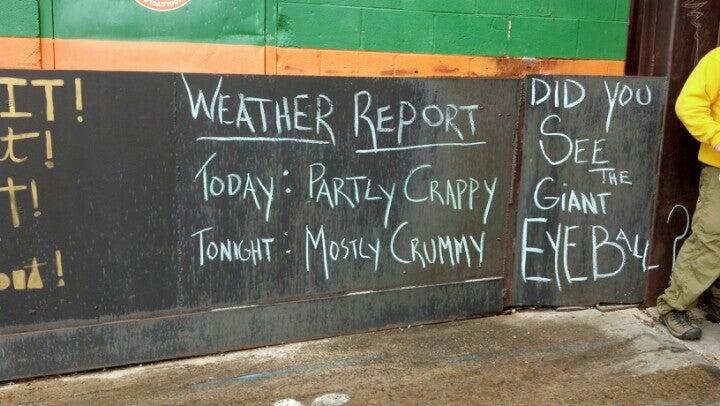 IT!
t!
t!
out!
WEATHER REPORT
TODAY: PARTLY CRAPPY
TONIGHT: MOSTLY CRUMMY
DID YOU
SEE
THE
GIANT
EYEBALL?